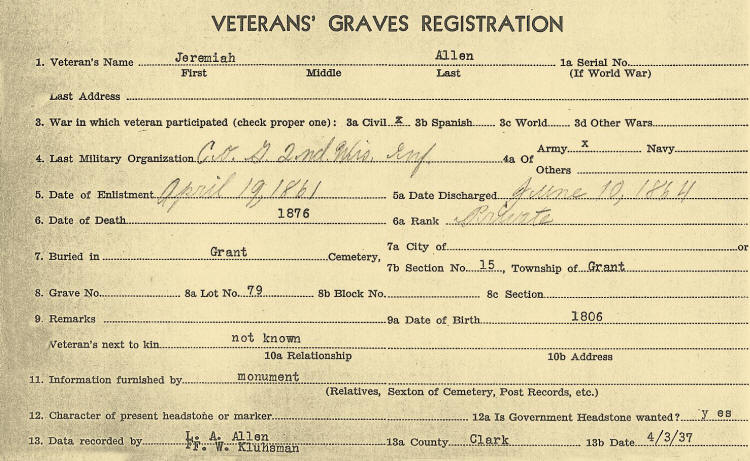 VETERANS' GRAVES REGISTRATION
1. Veteran's Name Jeremiah Allen 1a Serial No.
First Middle Last (If World War)
Last Address
3. War in which veteran participated (check proper one): 3a Civil x 3b Spanish 3c World 3d Other Wars
4. Last Military Organization Co. G. 2nd Wis. Inf 4a Of Army x Navy
Others
5. Date of Enlistment April 19, 1861 5a Date Discharged June 10, 1864
6. Date of Death 1876 6a Rank Private
7. Buried in Grant Cemetery, 7a City of or
7b Section No. 15, Township of Grant
8. Grave No. 8a Lot No. 79 8b Block No. 8c Section
9. Remarks 9a Date of Birth 1806
Veteran's next to kin not known
10a Relationship 10b Address
11. Information furnished by monument
(Relatives, Sexton of Cemetery, Post Records, etc.)
12. Character of present headstone or marker 12a Is Government Headstone wanted? y es
13. Data recorded by L. A. Allen 13a County Clark 13b Date 4/3/37
W. Kluhsman